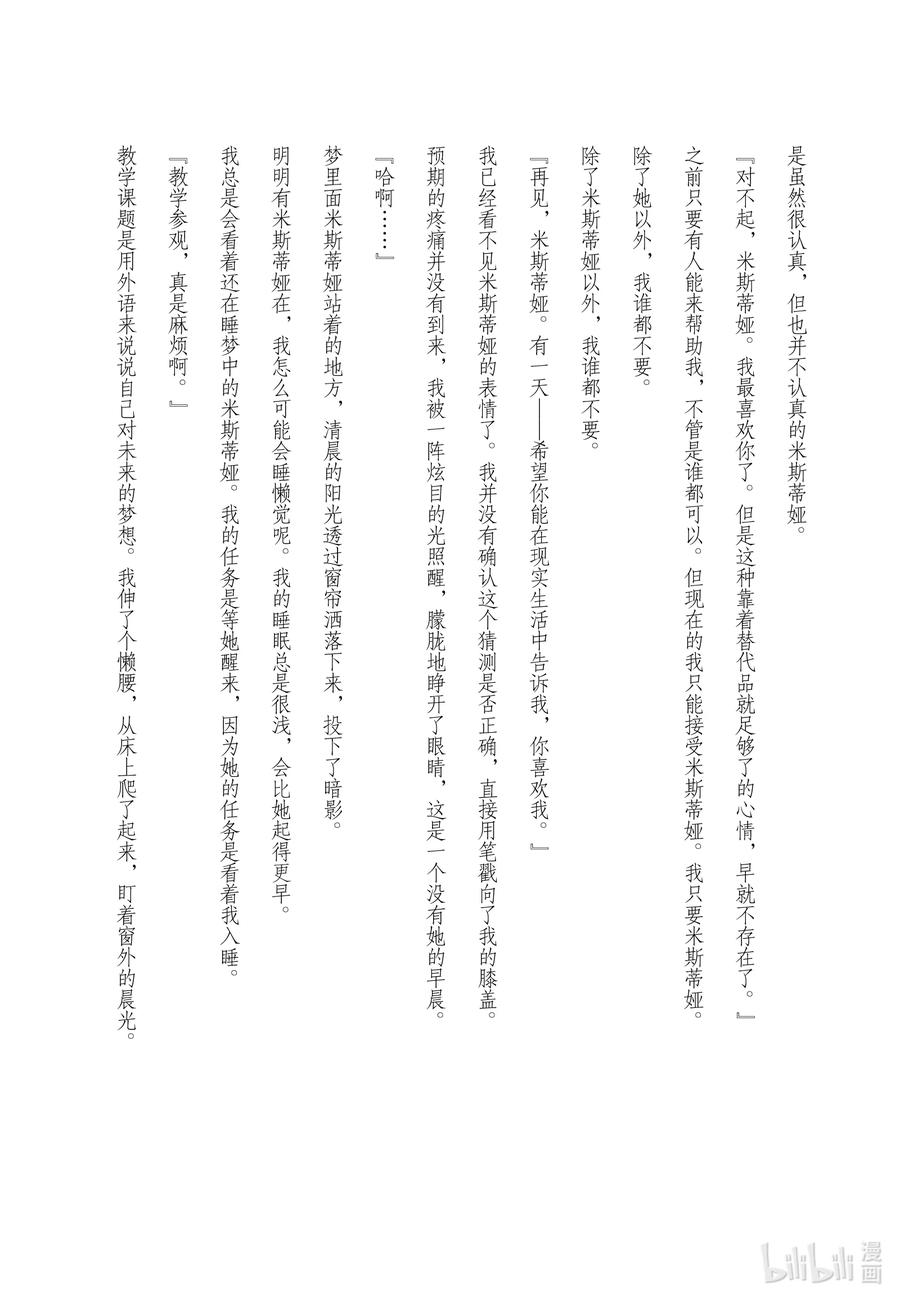 是虽然很认真，但也并不认真的米斯蒂娅。
『对不起，米斯蒂娅。我最喜欢你了。但是这种靠着替代品就足够了的心情，早就不存在了。』
之前只要有人能来帮助我，不管是谁都可以。但现在的我只能接受米斯蒂娅。我只要米斯蒂娅。
除了她以外，我谁都不要。
除了米斯蒂娅以外，我谁都不要。
『再见，米斯蒂娅。有一天——希望你能在现实生活中告诉我，你喜欢我。』
我已经看不见米斯蒂娅的表情了。我并没有确认这个猜测是否正确，直接用笔戳向了我的膝盖。
预期的疼痛并没有到来，我被一阵炫目的光照醒，朦胧地睁开了眼睛，这是一个没有她的早晨。
『哈啊……』
梦里面米斯蒂娅站着的地方，清晨的阳光透过窗帘洒落下来，投下了暗影。
明明有米斯蒂娅在，我怎么可能会睡懒觉呢。我的睡眠总是很浅，会比她起得更早。
我总是会看着还在睡梦中的米斯蒂娅。我的任务是等她醒来，因为她的任务是看着我入睡。
『教学参观，真是麻烦啊。』
教学课题是用外语来说说自己对未来的梦想。我伸了个懒腰，从床上爬了起来，盯着窗外的晨光。
bilibili 漫画